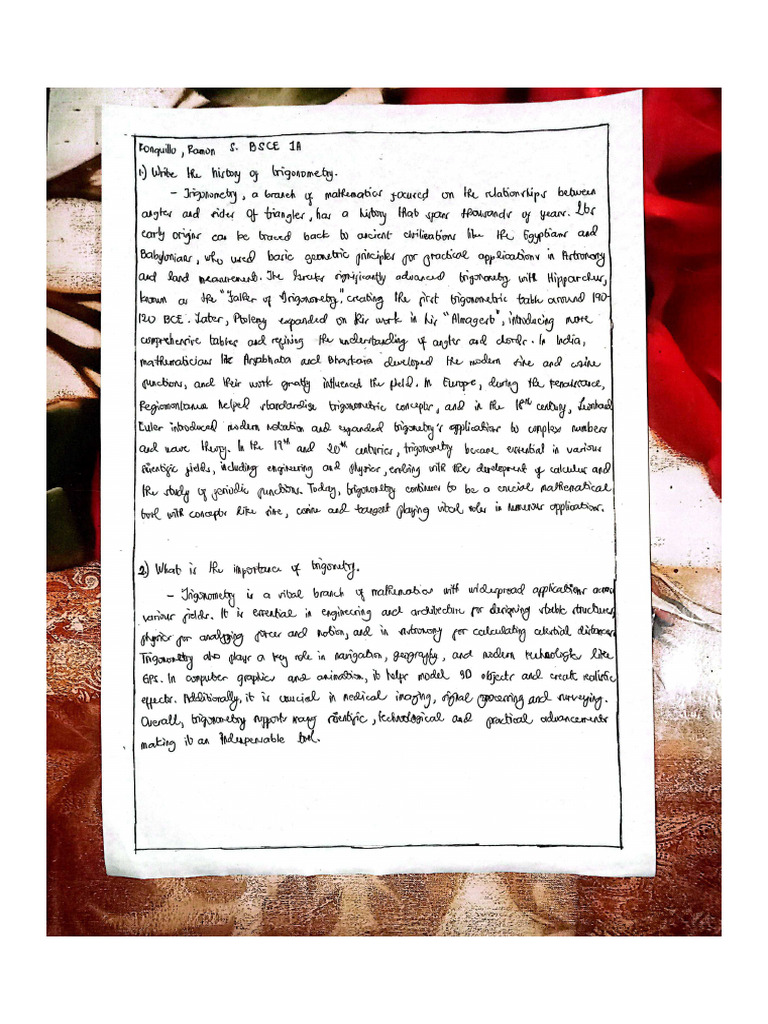 Ronquillo, Ramon S. BSCE 1A
1.) Write the history of trigonometry.
- Trigonometry, a branch of mathematics focused on the relationships between
angles and sides of triangles, has a history that spans thousands of years. Its
early origins can be traced back to ancient civilizations like the Egyptians and
Babylonians, who used basic geometric principles for practical applications in Astronomy
and land measurement. The Greeks significantly advanced trigonometry with Hipparchus,
known as the "Father of Trigonometry," creating the first trigonometric table around 190-
120 BCE. Later, Ptolemy expanded on this work in his "Almagest", introducing more
comprehensive tables and refining the understanding of angles and chords. In India,
mathematicians like Aryabhata and Bhaskara developed the modern sine and cosine
functions, and their work greatly influenced the field. In Europe, during the renaissance,
Regiomontanus helped standardize trigonometric concepts, and in the 18th century, Leonhard
Euler introduced modern notation and expanded trigometry's applications to complex numbers
and wave theory. In the 19th and 20th centuries, trigonometry became essential in various
scientific fields, including engineering and physics, evolving with the development of calculus and
the study of periodic functions. Today, trigonometry continues to be a crucial mathematical
tool with concepts like sine, cosine and tangent playing vital roles in numerous applications.
2.) What is the importance of trigonometry.
- Trigonometry is a vital branch of mathematics with widespread applications across
various fields. It is essential in engineering and architecture for designing stable structures,
physics for analyzing forces and motion, and in Astronomy for calculating celestial distances
Trigonometry also plays a key role in navigation, geography, and modern technologies like
GPS. In computer graphics and animation, it helps model 3D objects and create realistic
effects. Additionally, it is crucial in medical imaging, signal processing and surveying.
Overall, trigonometry supports many scientific, technological and practical advancements
making it an Indespensable tool.